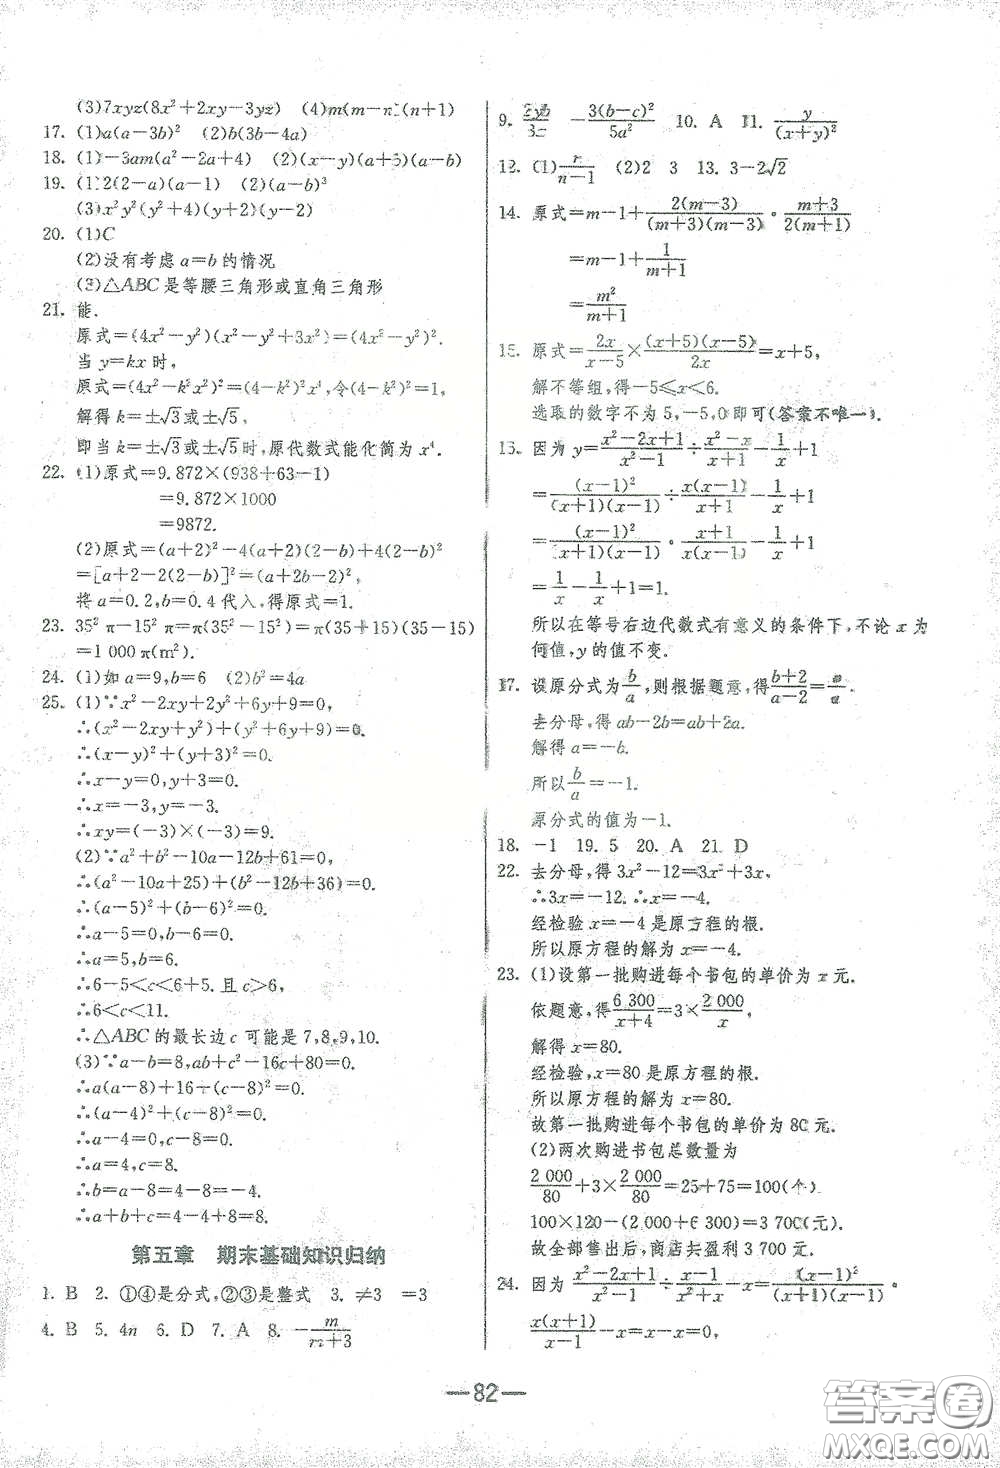 (3)7xyz(8x²+2xy-3yz) (4)m(m-n)(n+1)
17. (1)a(a-3b)² (2)b(3b-4a)
18. (1)-3am(a²-2a+4) (2)(x-y)(a+3)(a-b)
19. (1)2(2-a)(a-1) (2)(a-b)³
(3)x²y²(y²+4)(y+2)(y-2)
20. (1)C
(2)没有考虑a=b的情况
(3)△ABC是等腰三角形或直角三角形
21. 能.
原式=(4x²-y²)(x²-y²+3x²)=(4x²-y²)².
当y=kx时,
原式=(4x²-k²x²)²=(4-k²)²x⁴,令(4-k²)²=1,
解得k=±√3或±√5,
即当k=±√3或±√5时,原代数式能化简为x⁴.
22. (1)原式=9.872×(938+63-1)
=9.872×1000
=9872.
(2)原式=(a+2)²-4(a+2)(2-b)+4(2-b)²
=[a+2-2(2-b)]²=(a+2b-2)²,
将a=0.2,b=0.4代入,得原式=1.
23. 35²π-15²π=π(35²-15²)=π(35+15)(35-15)
=1 000π(m²).
24. (1)如a=9,b=6 (2)b²=4a
25. (1)∵x²-2xy+2y²+6y+9=0,
∴(x²-2xy+y²)+(y²+6y+9)=0.
∴(x-y)²+(y+3)²=0.
∴x-y=0,y+3=0.
∴x=-3,y=-3.
∴xy=(-3)×(-3)=9.
(2)∵a²+b²-10a-12b+61=0,
∴(a²-10a+25)+(b²-12b+36)=0.
∴(a-5)²+(b-6)²=0.
∴a-5=0,b-6=0.
∴a=5,b=6.
∴6-5<c<6+5.且c>6,
∴6<c<11.
∴△ABC的最长边c可能是7,8,9,10.
(3)∵a-b=8,ab+c²-16c+80=0,
∴a(a-8)+16+(c-8)²=0.
∴(a-4)²+(c-8)²=0.
∴a-4=0,c-8=0.
∴a=4,c=8.
∴b=a-8=4-8=-4.
∴a+b+c=4-4+8=8.
第五章 期末基础知识归纳
1. B 2. ①④是分式,②③是整式 3. ≠3 =3
4. B 5. 4n 6. D 7. A 8. -m/(m+3)
9. 2yb/3x -3(b-c)²/5a² 10. A 11. y/(x+y)²
12. (1)n/(n-1) (2)2 3 13. 3-2√2
14. 原式=m-1+2(m-3)/(m+3)(m-3)·(m+3)/2(m+1)
=m-1+1/(m+1)
=m²/(m+1)
15. 原式=2x/(x-5)×(x+5)(x-5)/2x=x+5,
解不等组,得-5≤x<6.
选取的数字不为5,-5,0即可(答案不唯一).
13. 因为y=(x²-2x+1)/(x²-1)÷(x²-x)/(x+1)-1/x+1
=(x-1)²/(x+1)(x-1)÷x(x-1)/(x+1)-1/x+1
=(x-1)²/(x+1)(x-1)·(x+1)/x(x-1)-1/x+1
=1/x-1/x+1=1.
所以在等号右边代数式有意义的条件下,不论x为
何值,y的值不变.
17. 设原分式为b/a,则根据题意,得(b+2)/(a-2)=b/a.
去分母,得ab-2b=ab+2a.
解得a=-b.
所以b/a=-1.
原分式的值为-1.
18. -1 19. 5 20. A 21. D
22. 去分母,得3x²-12=3x²+3x,
∴3x=-12.∴x=-4.
经检验x=-4是原方程的根.
所以原方程的解为x=-4.
23. (1)设第一批购进每个书包的单价为x元.
依题意,得6 300/(x+4)=3×2 000/x,
解得x=80.
经检验,x=80是原方程的根.
所以原方程的解为x=80.
故第一批购进每个书包的单价为80元.
(2)两次购进书包总数量为
2 000/80+3×2 000/80=25+75=100(个)
100×120-(2 000+6 300)=3 700(元)
故全部售出后,商店共盈利3 700元.
24. 因为(x²-2x+1)/(x²-1)÷(x-1)/(x²+x)-x=(x-1)²/(x+1)(x-1)·
x(x+1)/(x-1)-x=x-x=0,
—82—
答案圈
MXQE.COM